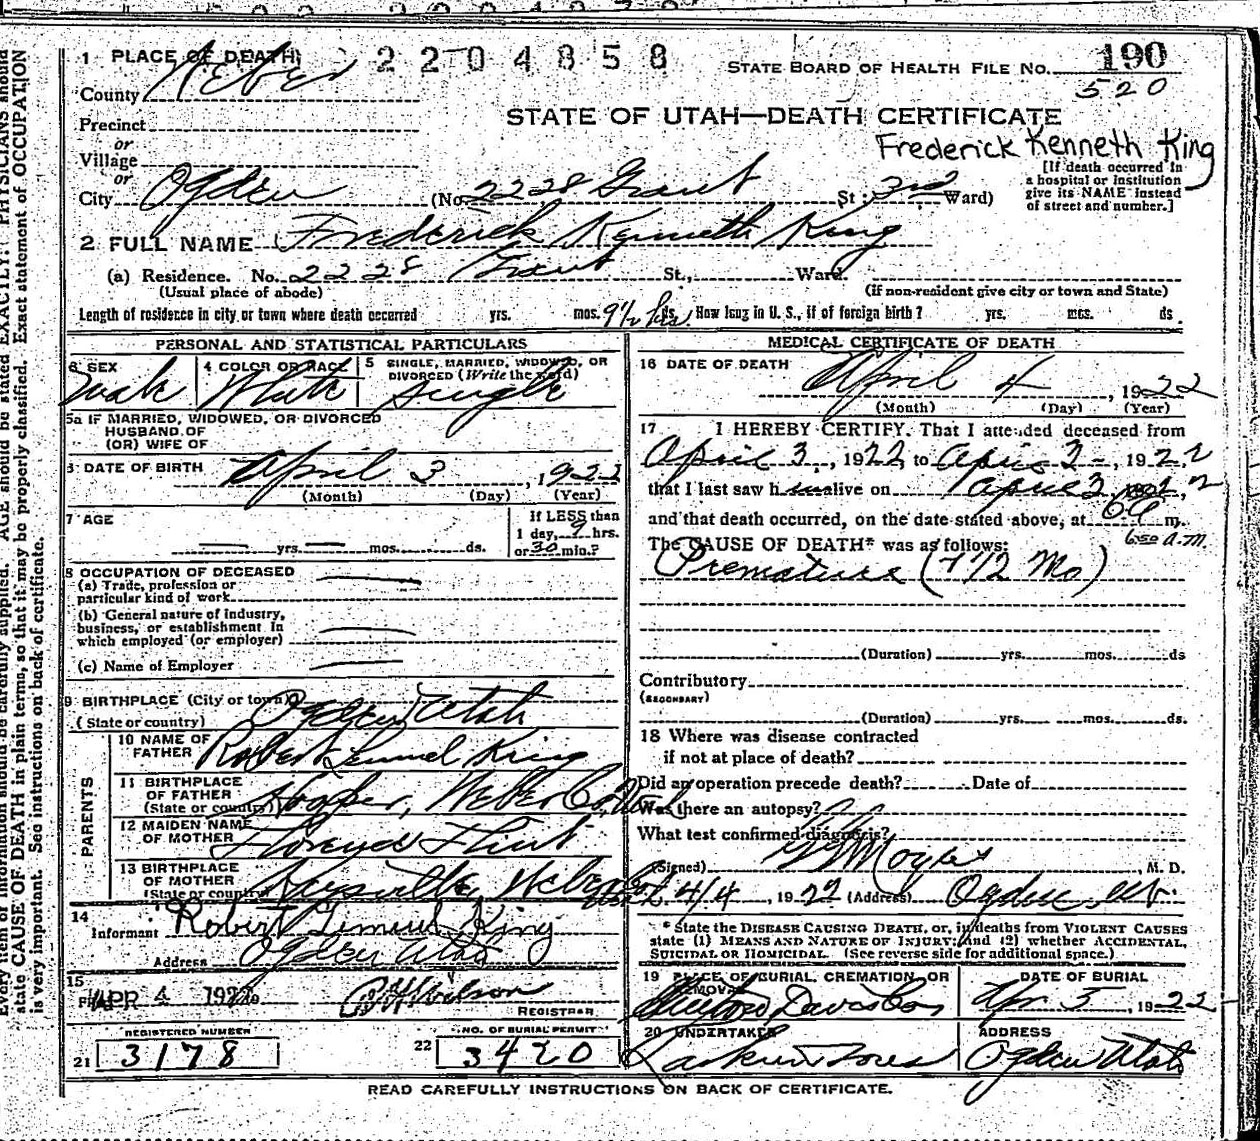 1 PLACE OF DEATH 2204858 STATE BOARD OF HEALTH FILE No. 190
County Weber 520
Precinct STATE OF UTAH—DEATH CERTIFICATE
or Frederick Kenneth King
Village [If death occurred in
or a hospital or institution
City Ogden (No. 2228 Grant St; 3rd Ward) give its NAME instead
of street and number.]
2 FULL NAME Frederick Kenneth King
(a) Residence. No. 2228 Grant St., Ward.
(Usual place of abode) (If non-resident give city or town and State)
Length of residence in city or town where death occurred yrs. mos. 9½ hrs. ds. How long in U. S., if of foreign birth? yrs. mos. ds.
PERSONAL AND STATISTICAL PARTICULARS
3 SEX 4 COLOR OR RACE 5 SINGLE, MARRIED, WIDOWED, OR
DIVORCED (Write the word)
Male White Single
5a IF MARRIED, WIDOWED, OR DIVORCED
HUSBAND OF
(OR) WIFE OF
6 DATE OF BIRTH April 3, 1922
(Month) (Day) (Year)
7 AGE If LESS than
1 day, 9 hrs.
yrs. mos. ds. or 30 min.?
8 OCCUPATION OF DECEASED
(a) Trade, profession or
particular kind of work
(b) General nature of industry,
business, or establishment in
which employed (or employer)
(c) Name of Employer
9 BIRTHPLACE (City or town)
(State or country) Ogden Utah
PARENTS
10 NAME OF
FATHER Robert Lemuel King
11 BIRTHPLACE
OF FATHER
(State or country) Hooper, Weber Co.
12 MAIDEN NAME
OF MOTHER Flint
13 BIRTHPLACE
OF MOTHER
(State or country) Kaysville, Weber
14
Informant Robert Lemuel King
Address Ogden Utah
15
APR 4 1922 Wilson
REGISTRAR
REGISTERED NUMBER NO. OF BURIAL PERMIT
21 3178 22 3420
MEDICAL CERTIFICATE OF DEATH
16 DATE OF DEATH
April 4, 1922
(Month) (Day) (Year)
17 I HEREBY CERTIFY, That I attended deceased from
April 3, 1922, to April 3, 1922
that I last saw h alive on April 3, 1922
and that death occurred, on the date stated above, at m.
650 a.m.
The CAUSE OF DEATH* was as follows:
Premature (7 1/2 Mo)
(Duration) yrs. mos. ds
Contributory
(SECONDARY)
(Duration) yrs. mos. ds.
18 Where was disease contracted
if not at place of death?
Did an operation precede death? Date of
Was there an autopsy? no
What test confirmed diagnosis?
(Signed) M. D.
4/4, 1922 (Address) Ogden
* State the DISEASE CAUSING DEATH, or, in deaths from VIOLENT CAUSES
state (1) MEANS AND NATURE OF INJURY; and (2) whether ACCIDENTAL,
SUICIDAL OR HOMICIDAL. (See reverse side for additional space.)
19 PLACE OF BURIAL, CREMATION, OR DATE OF BURIAL
REMOVAL
Davis Co Apr 5, 1922
20 UNDERTAKER ADDRESS
Larkin Ogden Utah
READ CAREFULLY INSTRUCTIONS ON BACK OF CERTIFICATE.
Every item of information should be carefully supplied. AGE should be stated EXACTLY. PHYSICIANS should
state CAUSE OF DEATH in plain terms, so that it may be properly classified. Exact statement of OCCUPATION
is very important. See instructions on back of certificate.